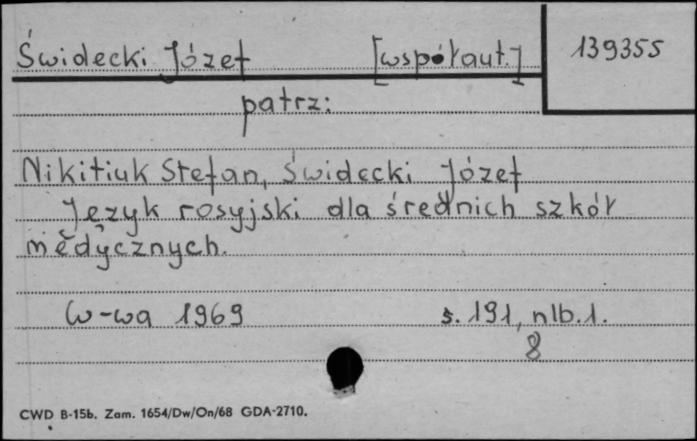 Świdecki Józef [współaut.] 139355
patrz:
Nikitiuk Stefan, Świdecki Józef
Język rosyjski dla średnich szkół
medycznych.
W-wa 1969 s. 191, nlb.1.
8
CWD B-15b. Zam. 1654/Dw/On/68 GDA-2710.